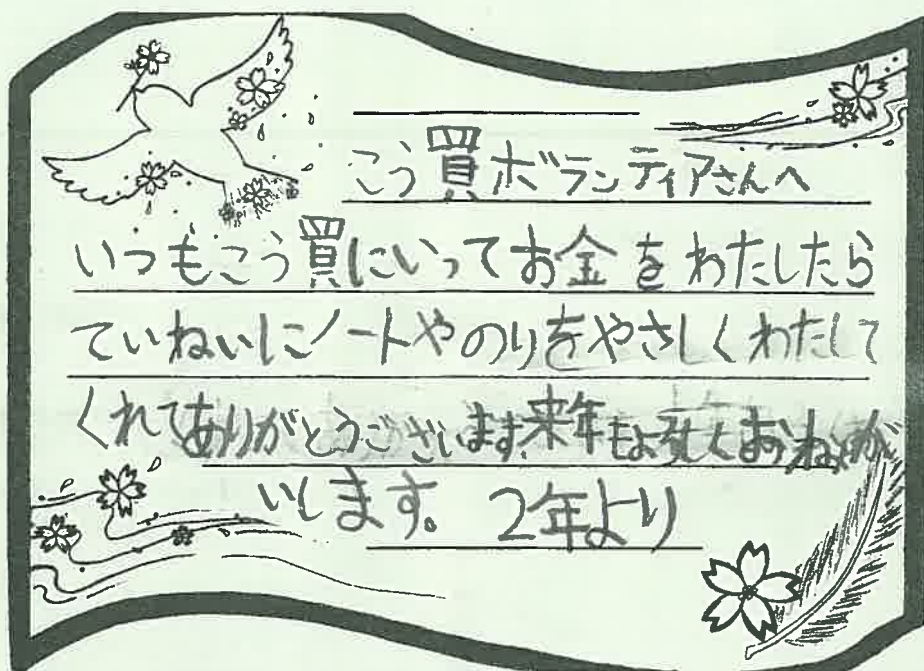 こう買ボランティアさんへ
いつもこう買にいってお金をわたしたら
ていねいにノートやのりをやさしくわたして
くれてありがとうございます。来年もよろしくおねが
いします。 2年より